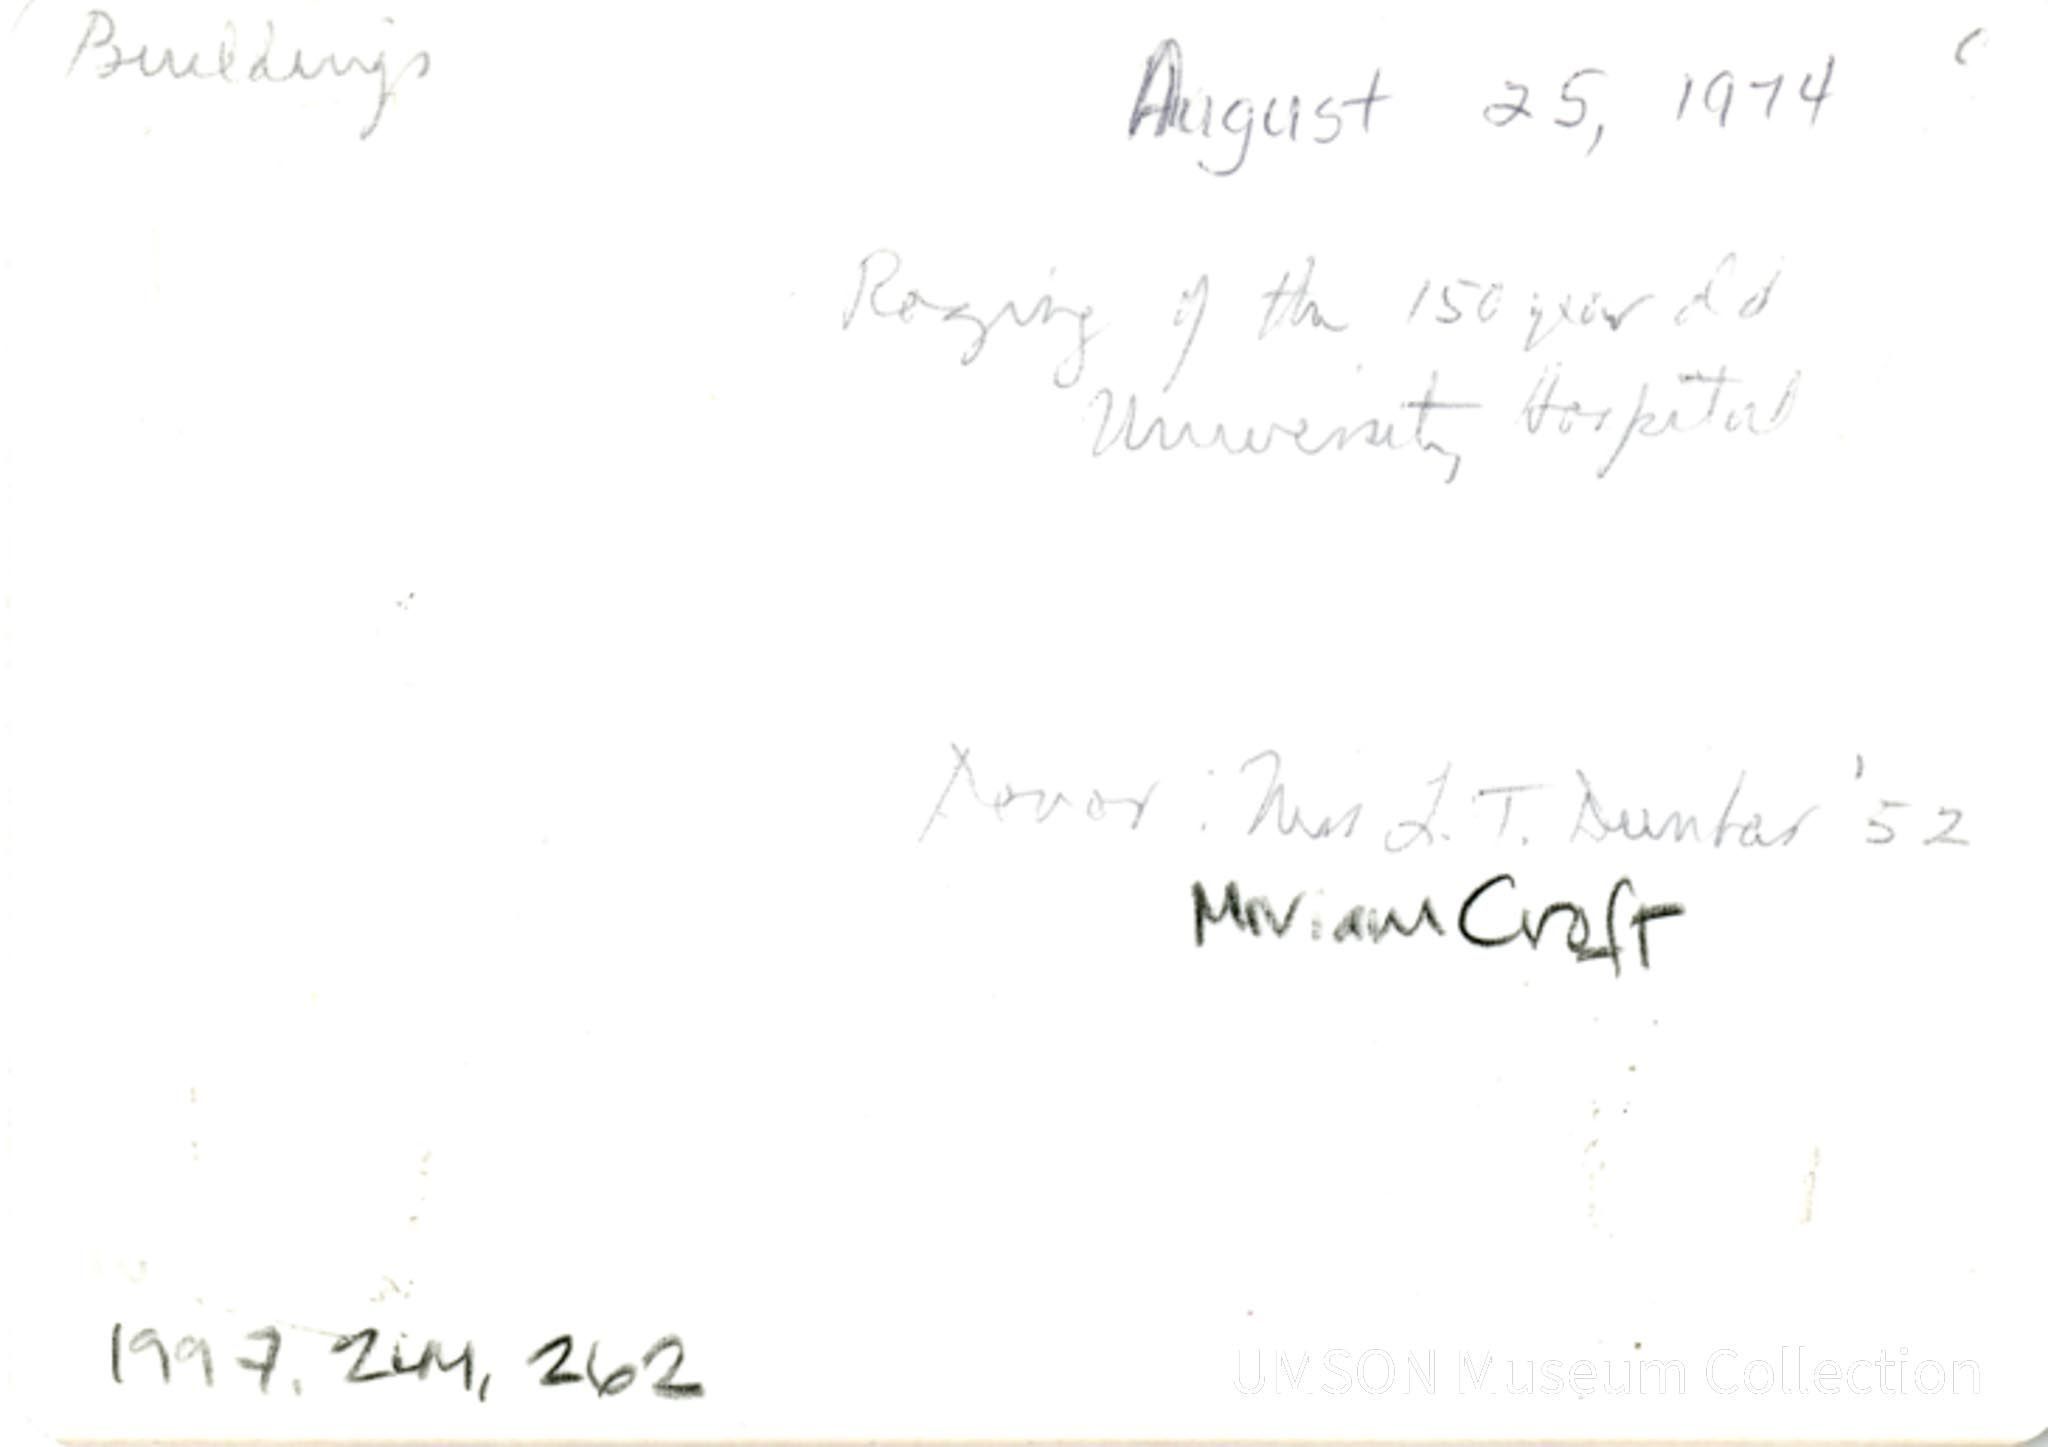 Buildings
August 25, 1974
Razing of the 150 year old
University Hospital
Donor: Mrs L. T. Dunbar '52
Miriam Croft
1997. ZIM, 262
UMSON Museum Collection